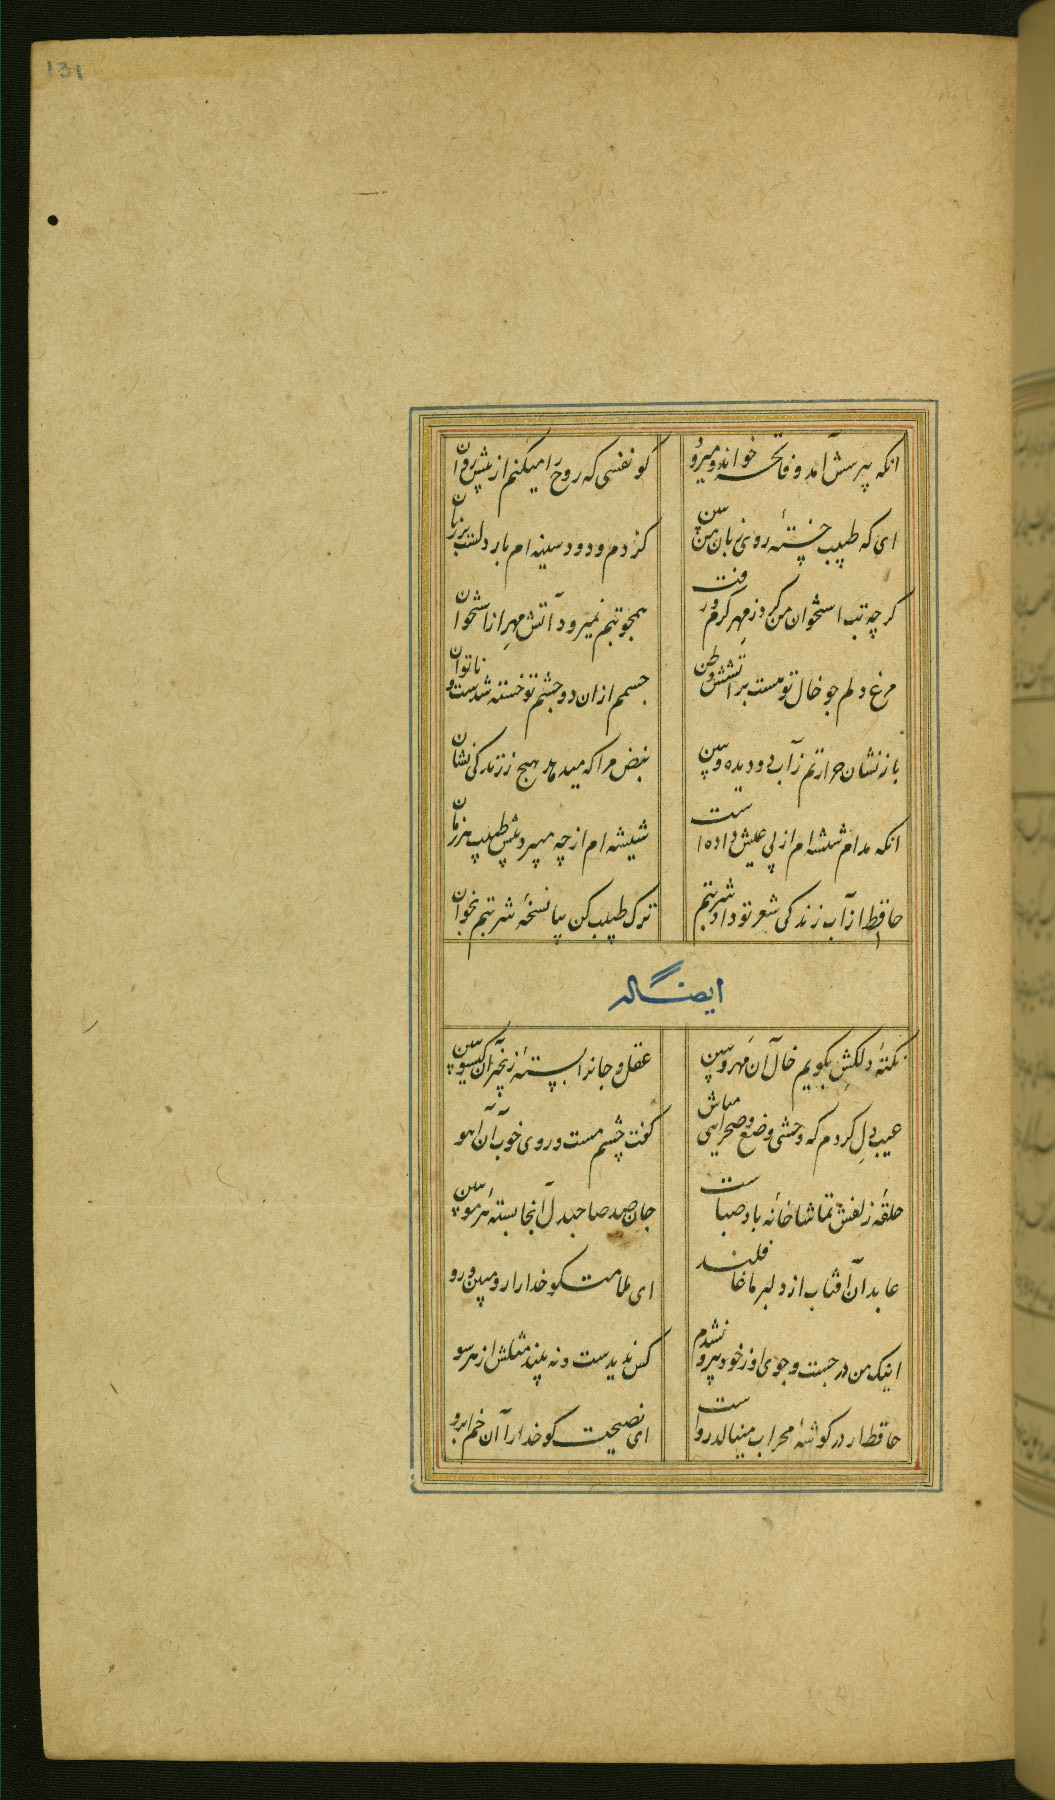 131
انکه پپرسش آمد و فاتحه خواند و میرود کو نفسی که روح را میکنم از پیش روان
ای که طبیب خسته روی زبان من ببین کز دم و دود سینه ام بار دلست بر زبان
کرچه تب استخوان من کرد ز مهر کرم و رفت همچو تبم نمیرود آتش مهر از استخوان
مرغ دلم چو خال تو هست بر آتشش وطن جسمم از ان دو چشم تو خسته شدست و ناتوان
باز نشان حرارتم ز آب دو دیده و ببین نبض مرا که میدهد هیچ ز زندکی نشان
انکه مدام شیشه ام از پی عیش داده است شیشه ام از چه میبرد پیش طبیب هر زمان
حافظ از آب زندکی شعر تو داد شربتم ترک طبیب کن بیا نسخه شربتم بخوان
ایضا له
نکتهٔ دلکش بکویم خال آن مهرو ببین عقل و جانرا بستهٔ زنجیر آن کیسو ببین
عیب دل کردم که وحشی وضع و صحرایی مباش کفت چشم مست و روی خوب آن آهو ببین
حلقهٔ زلفش تماشا خانهٔ باد صباست جان صد صاحبدل آنجا بستهٔ هر مو ببین
عابدان آفتاب از دلبر ما غافلند ای ملامت کو خدارا رو مبین و رو
اینک من در جست و جوی او ز خود پیرو نشدم کس ندیدست و نه بیند مثلش از هر سو
حافظ ار در کوشهٔ محراب مینالد رواست ای نصیحت کو خدارا آن خم ابرو